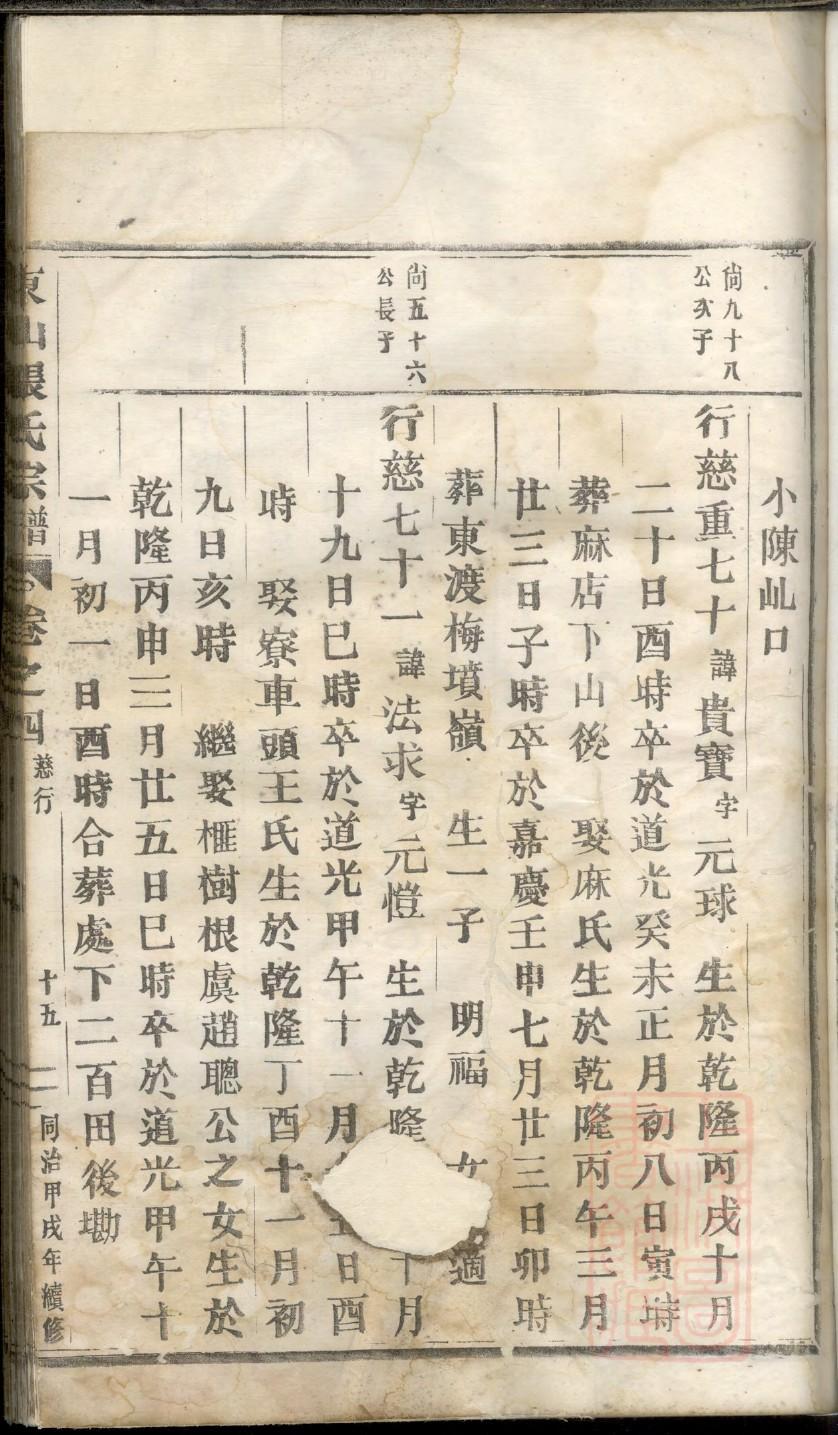 小陳乢口
尙九十八
公次子
行慈重七十諱貴寶字元球 生於乾隆丙戌十月
二十日酉時卒於道光癸未正月初八日寅時
葬麻店下山後 娶麻氏生於乾隆丙午三月
廿三日子時卒於嘉慶壬申七月廿三日卯時
葬東渡梅墳嶺 生一子 明福 女 適
尙五十六
公長子
行慈七十一諱法求字元愷 生於乾隆 十月
十九日巳時卒於道光甲午十一月 日酉
時 娶寮車頭王氏生於乾隆丁酉十一月初
九日亥時 繼娶榧樹根虞趙聰公之女生於
乾隆丙申三月廿五日巳時卒於道光甲午十
一月初一日酉時合葬處下二百田後墈
東山張氏宗譜 卷之四 慈行 十五 同治甲戌年續修